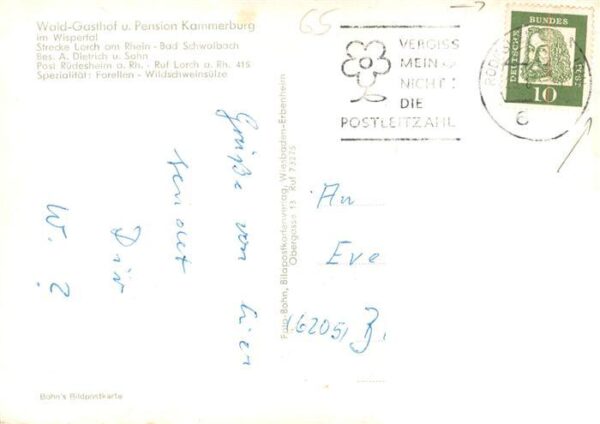 Wald-Gasthof u. Pension Kammerburg
im Wispertal
Strecke Lorch am Rhein - Bad Schwalbach
Bes. A. Dietrich u. Sohn
Post Rüdesheim a. Rh. - Ruf Lorch a. Rh. 415
Spezialität: Forellen - Wildschweinsülze
65
VERGISS
MEIN
NICHT:
DIE
POSTLEITZAHL
DEUTSCHE BUNDESPOST
10
6
Grüße von hier
sendet
Dir
W. ?
Foto-Bohn, Bildpostkartenverlag, Wiesbaden-Erbenheim
Obergasse 13 Ruf 73275
An
Eve
(6205)
Bohn's Bildpostkarte